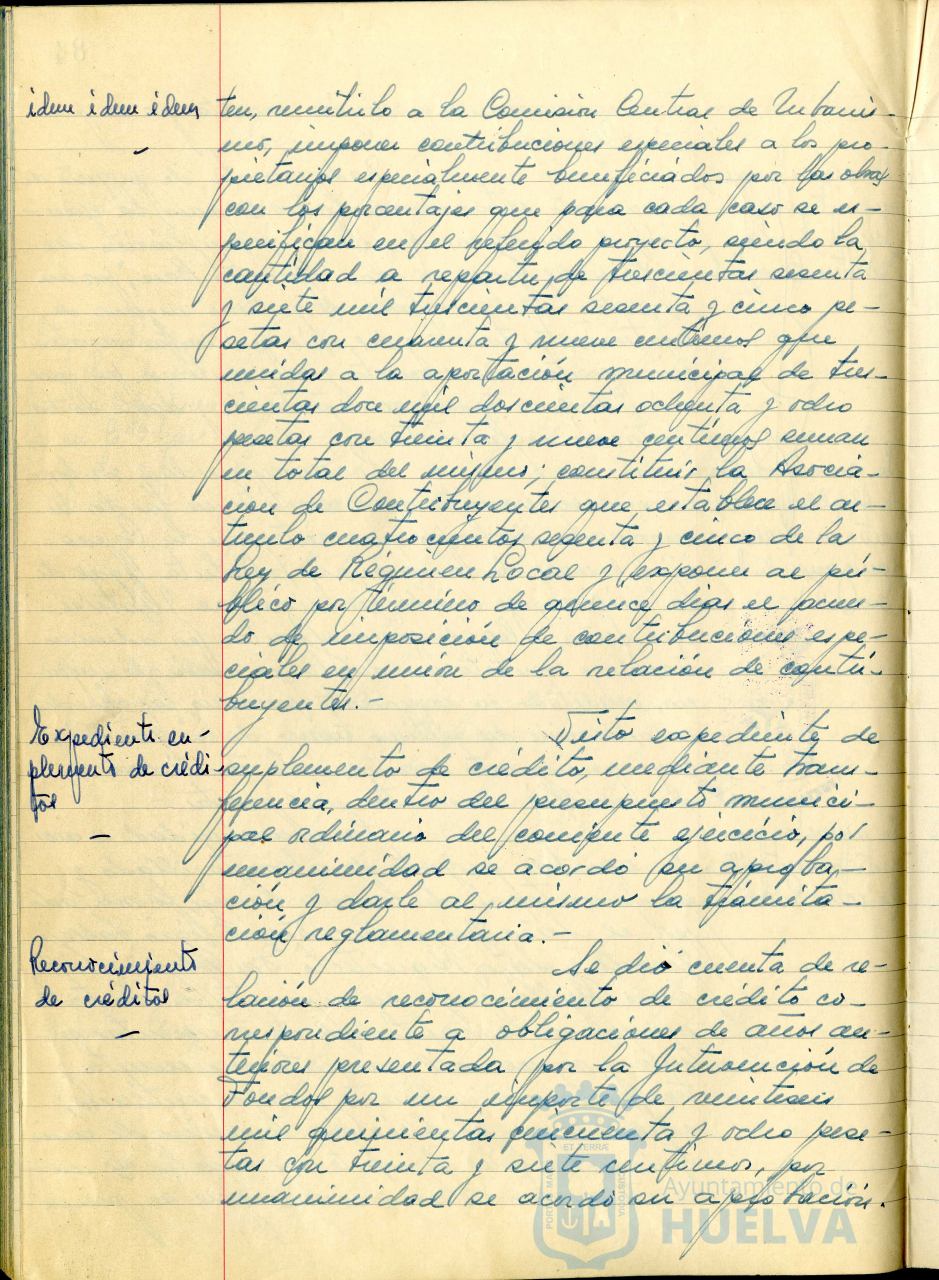 idem idem idem
ten, remitirlo a la Comisión Central de Urbanis-
mo, imponer contribuciones especiales a los pro-
pietarios especialmente beneficiados por las obras
con los porcentajes que para cada caso se es-
pecifican en el referido proyecto, siendo la
cantidad a repartir de trescientas sesenta
y siete mil trescientas sesenta y cinco pe-
setas con cuarenta y nueve centimos que
unidas a la aportación municipal de tres-
cientas doce mil doscientas ochenta y ocho
pesetas con treinta y nueve centimos suman
un total del mismo; constituir la Asocia-
cion de Contribuyentes que establece el ar-
ticulo cuatrocientos sesenta y cinco de la
Ley de Régimen Local y exponer al pú-
blico por término de quince dias el acuer-
do de imposición de contribuciones espe-
ciales en unión de la relación de contri-
buyentes.-
Expediente su-
plemento de crédi-
tos
Visto expediente de
suplemento de crédito, mediante trans-
ferencia, dentro del presupuesto munici-
pal ordinario del corriente ejercicio, por
unanimidad se acordó su aproba-
ción y darle al mismo la tramita-
ción reglamentaria.-
Reconocimiento
de créditos
Se dió cuenta de re-
lación de reconocimiento de crédito co-
rrespondiente a obligaciones de años an-
teriores presentada por la Intervención de
Fondos por un importe de veintiseis
mil quinientas cincuenta y ocho pese-
tas con treinta y siete centimos, por
unanimidad se acordó su aprobación.
Ayuntamiento de
HUELVA